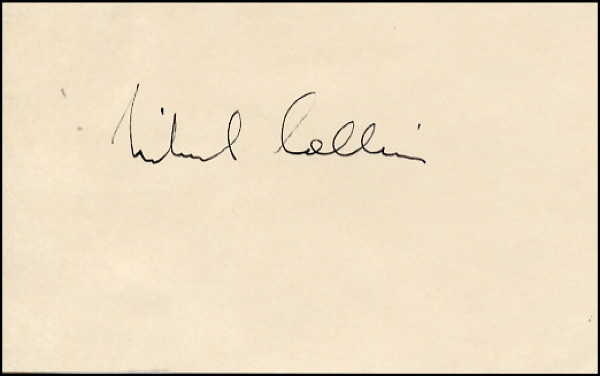 Michael Collins